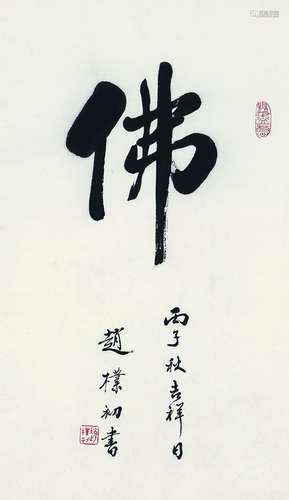 佛
丙子秋吉祥日
趙樸初書